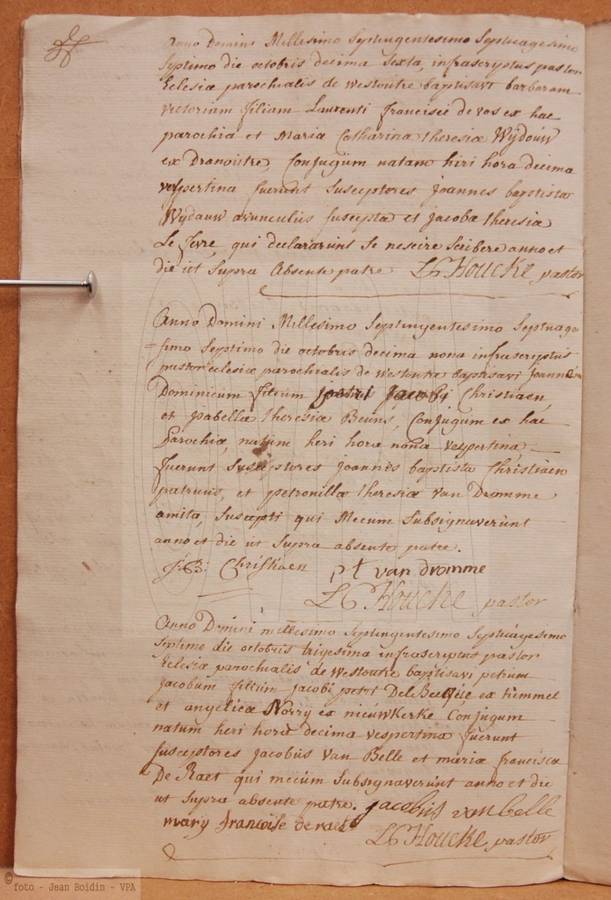 Anno Domini Millesimo Septingentesimo Septuagesimo
Septimo die octobris decima sexta, infrascriptus pastor
Eclesiæ parochialis de westoutre baptisavi barbaram
victoriam filiam Laurenti francisci de vos ex hac
parochia et Maria Catharina theresiæ Wÿdouw
ex Dranoutre, Conjugum natam heri hora decima
vespertina fuerunt Susceptores joannes baptista
Wÿdauw avunculus suscepta et jacoba theresia
Le fevre, qui declararunt Se nescire Scribere anno et
die ut Supra Absente patre L Houcke pastor
Anno Domini Millesimo Septingentesimo Septuage
=simo Septimo die octobris decima nona infrascriptus
pastor Eclesiæ parochialis de westoutre baptisavi joannem
Dominicum filium jacobi Christiaen,
et isabellæ theresiæ Beuns, Conjugum ex hac
parochia, natum heri hora nona vespertina,
fuerunt Susceptores joannes baptista Christiaen
patruus, et petronilla theresia van Dromme
amita, Suscepti qui Mecum Subsignaverunt
anno et die ut Supra absente patre.
j:B: Christiaen p t van dromme
L Houcke pastor
Anno Domini millesimo Septingentesimo Septuagesimo
Septimo die octobris trigesima infrascriptus pastor
Eclesiæ parochialis de Westoutre baptisavi petrum
jacobum filium jacobi petri Dele Becque ex himmel
et angelicæ Norry ex nieuwkerke Conjugum
natum heri hora decima vespertina fuerunt
susceptores jacobus Van Belle et maria francisca
De Raet qui mecum Subsignaverunt anno et die
ut Supra absente patre. jacobus van belle
mary francoise de raet
L Houcke pastor
© foto - Jean Boidin - VPA